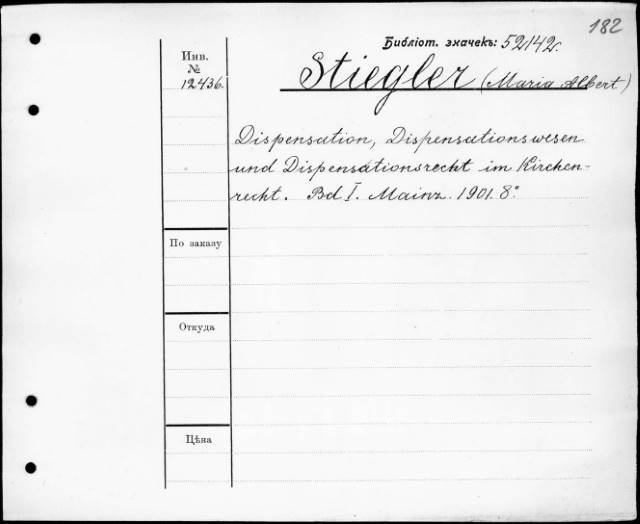 182
Библіот. значекъ: 52142.
Инв. №
12436.
Stiegler (Maria Albert)
Dispensation, Dispensationswesen
und Dispensationsrecht im Kirchen-
recht. Bd I. Mainz. 1901. 8°
По заказу
Откуда
Цѣна